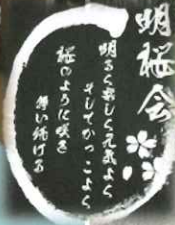 明桜会
明るく楽しく元気よく
そしてかっこよく
桜のように咲き
舞い続ける